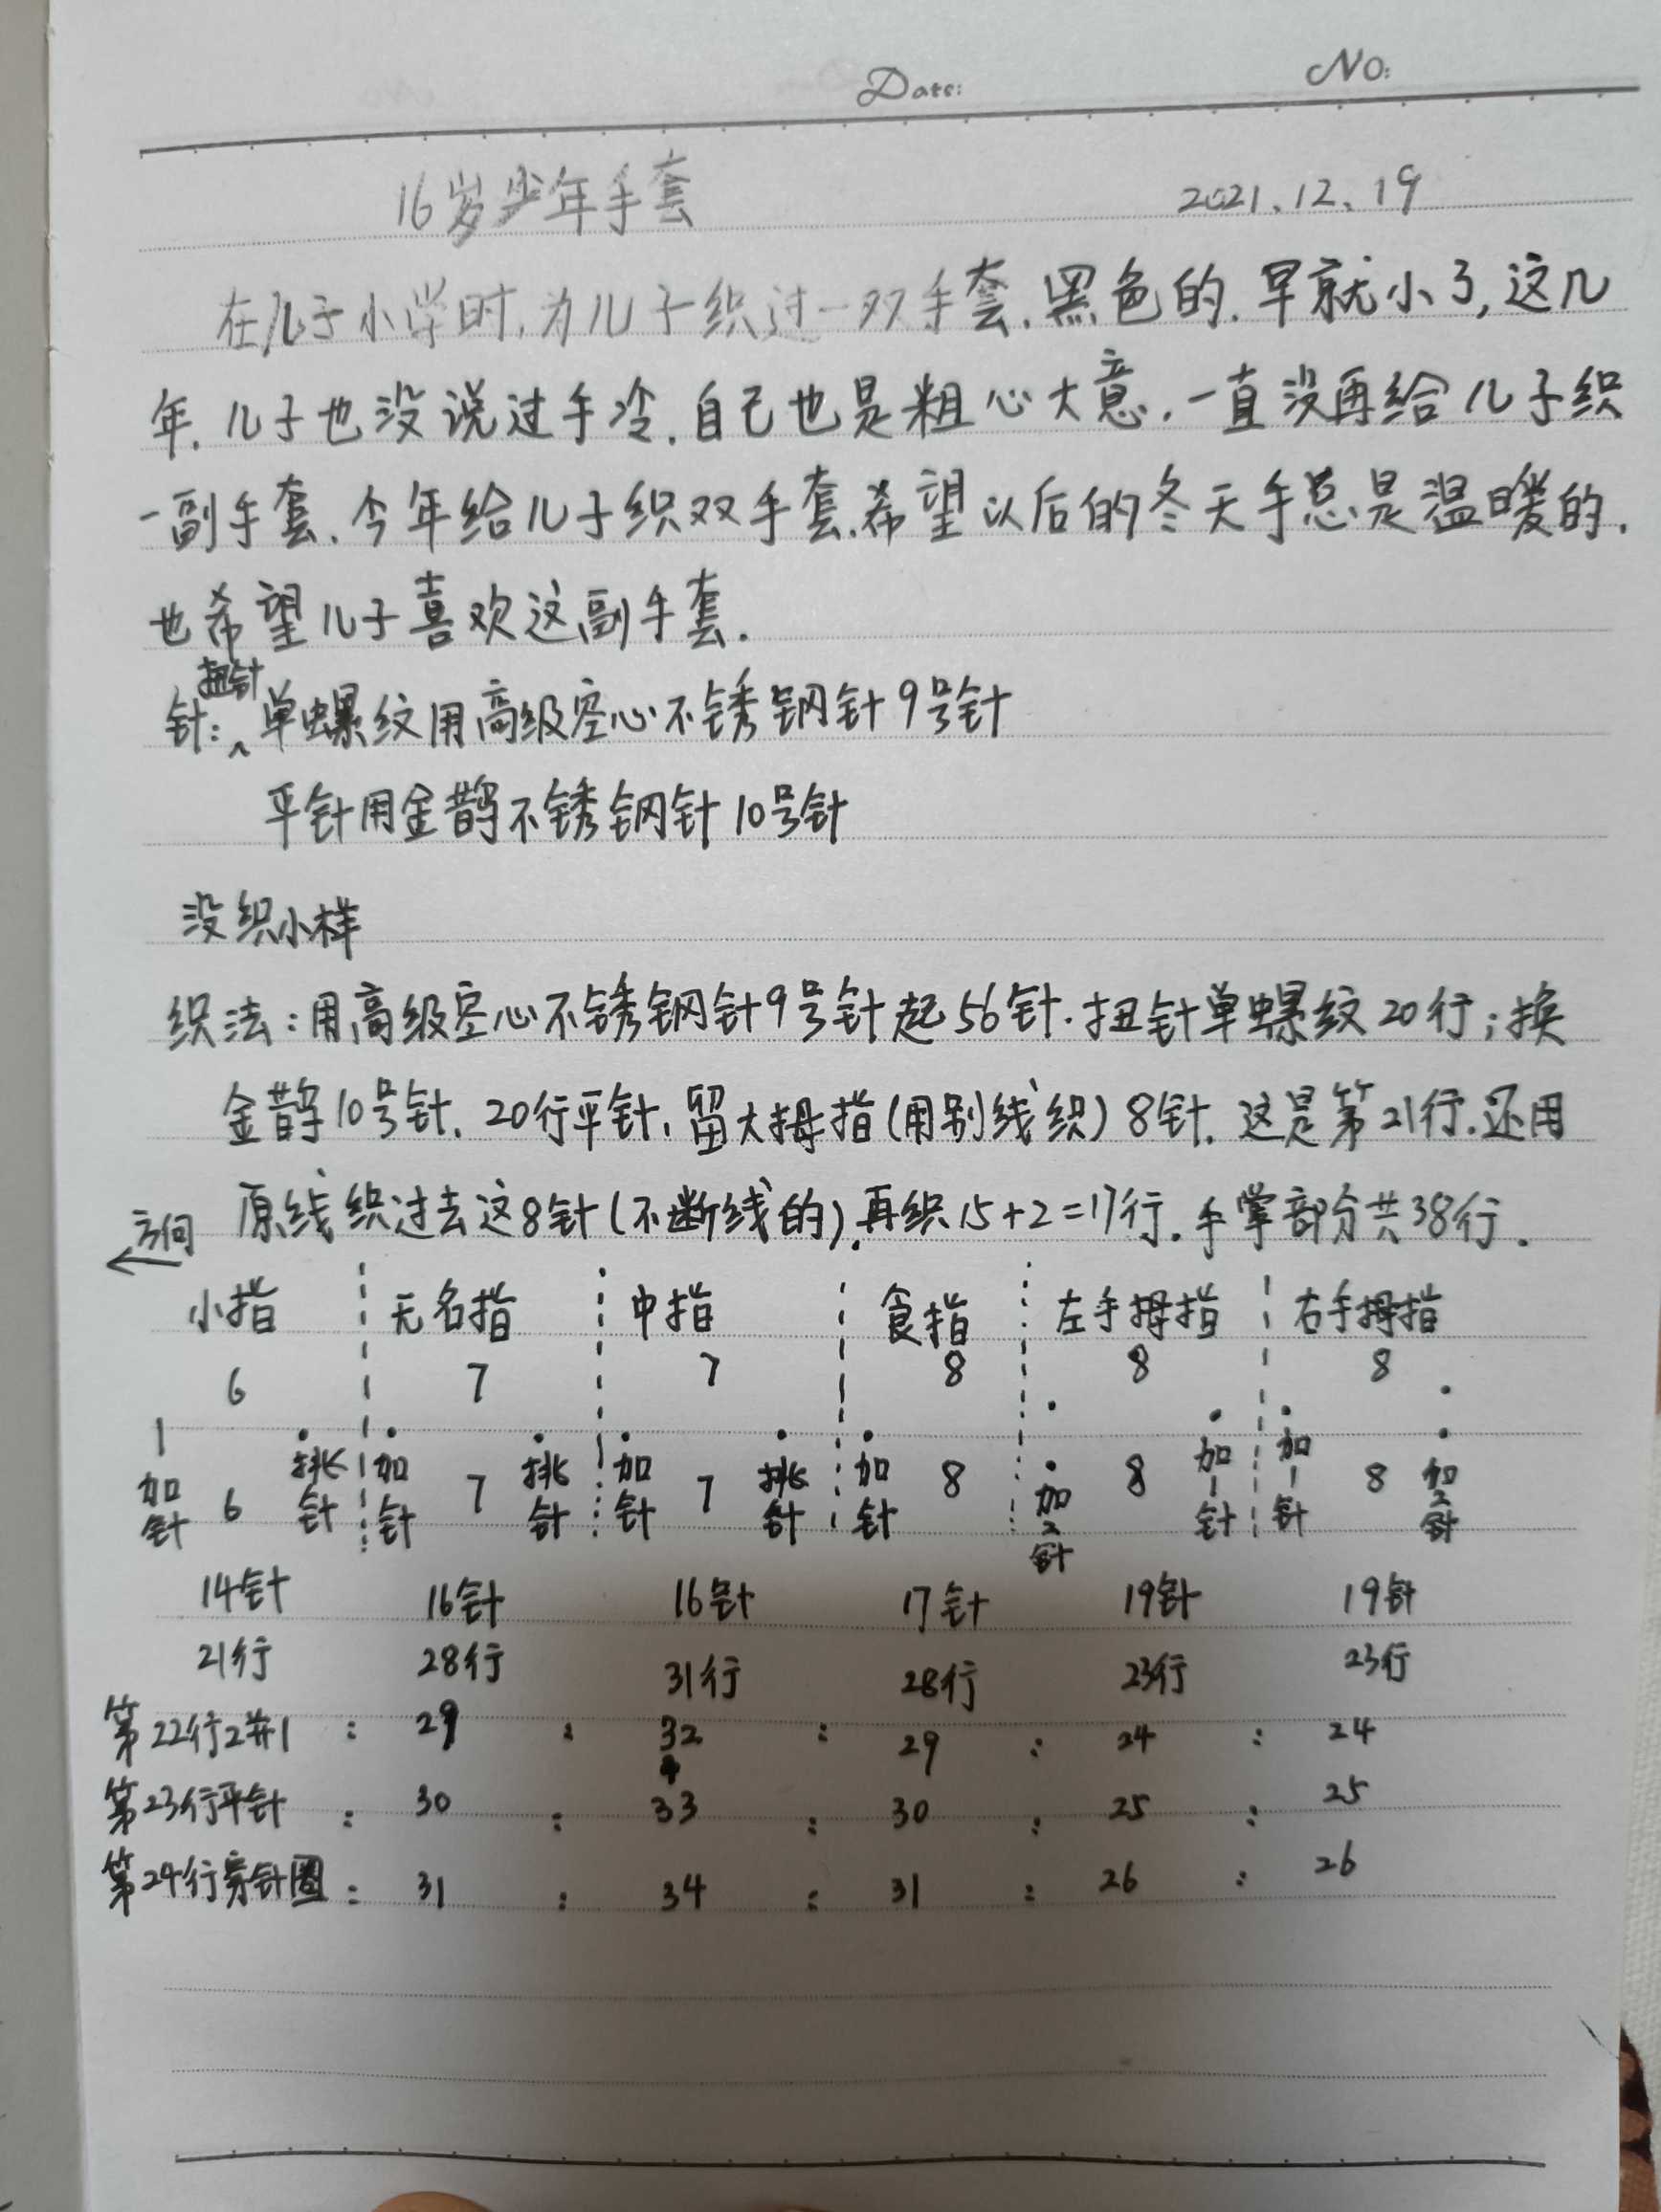 Date: No:
16岁少年手套 2021.12.19
在儿子小学时,为儿子织过一双手套.黑色的.早就小了,这几
年.儿子也没说过手冷.自己也是粗心大意.一直没再给儿子织
一副手套.今年给儿子织双手套.希望以后的冬天手总是温暖的.
也希望儿子喜欢这副手套.
扭针
针:∧单螺纹用高级空心不锈钢针9号针
平针用金鹊不锈钢针10号针
没织小样
织法:用高级空心不锈钢针9号针起56针.扭针单螺纹20行;换
金鹊10号针.20行平针.留大拇指(用别线织)8针.这是第21行.还用
原线织过去这8针(不断线的).再织15+2=17行.手掌部分共38行.
方向
←
小指 无名指 中指 食指 左手拇指 右手拇指
6 7 7 8 8 8
1加针 6 挑针 加针 7 挑针 加针 7 挑针 加针 8 加2针 8 加1针 加1针 8 加2针
14针 16针 16针 17针 19针 19针
21行 28行 31行 28行 23行 23行
第22行2并1 : 29 : 32 : 29 : 24 : 24
第23行平针 : 30 : 33 : 30 : 25 : 25
第24行穿针圈 : 31 : 34 : 31 : 26 : 26